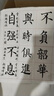 不負韶華
與時俱進
自強不息